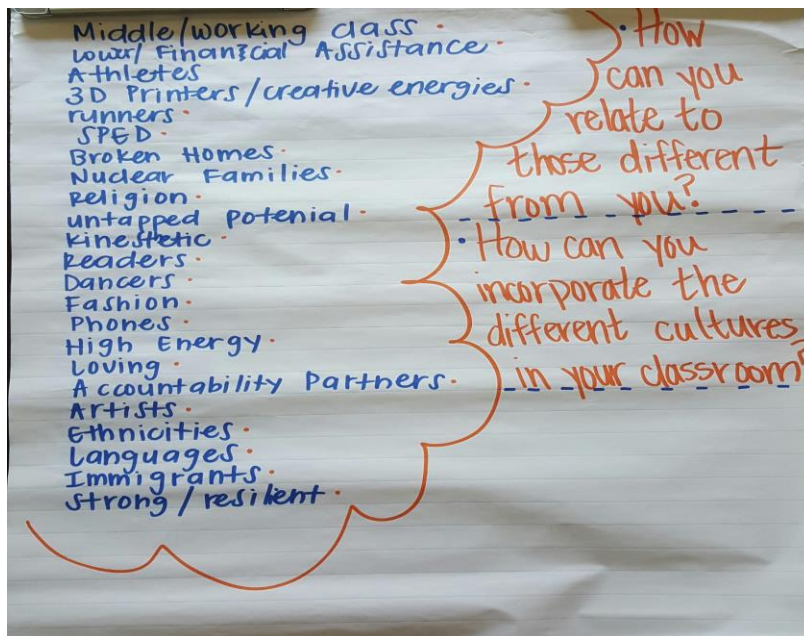 Middle/working class ·
Lower/ Financial Assistance ·
Athletes
3D Printers/creative energies ·
runners ·
SPED ·
Broken Homes ·
Nuclear Families ·
Religion ·
untapped potenial ·
kinesthetic ·
Readers ·
Dancers ·
Fashion ·
Phones ·
High Energy ·
Loving ·
Accountability Partners ·
Artists ·
Ethnicities ·
Languages ·
Immigrants ·
Strong/resilient ·
· How
can you
relate to
those different
from you?
· How can you
incorporate the
different cultures
in your classroom?